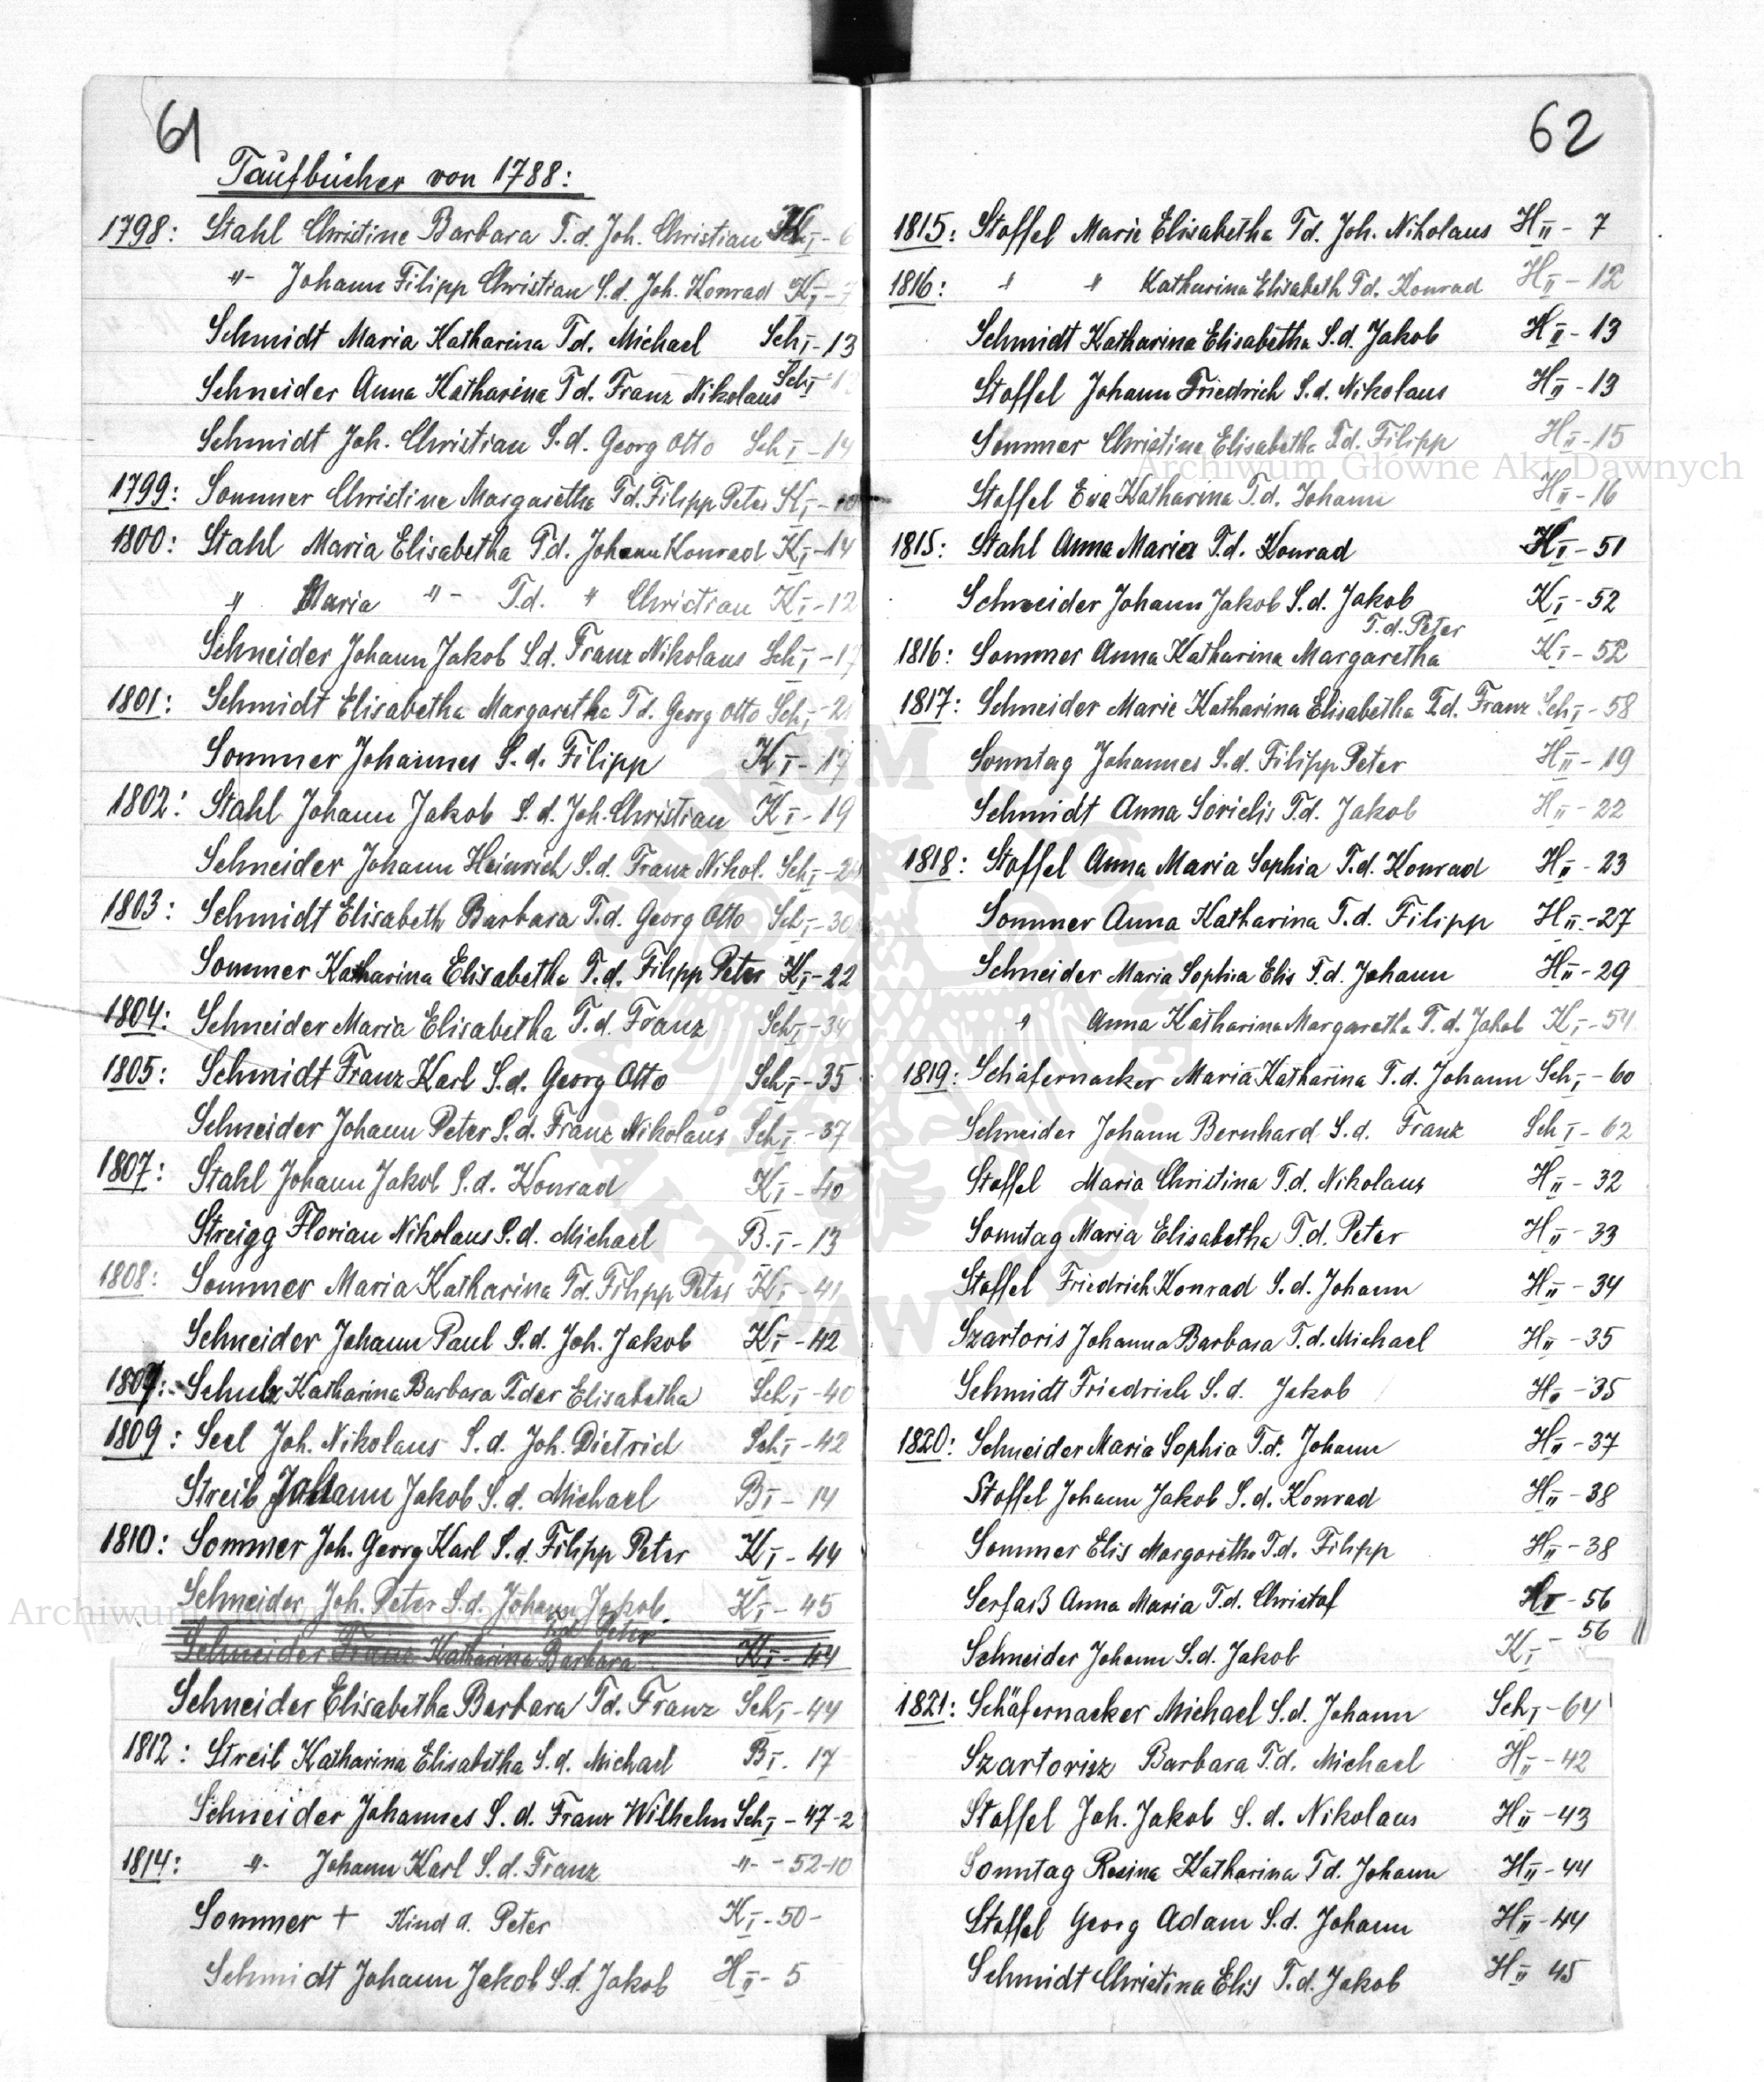 61
Taufbücher von 1788:
1798: Stahl Christine Barbara T.d. Joh. Christian I - 6
" - Johann Filipp Christian S.d. Joh. Konrad K I - 7
Schmidt Maria Katharina T.d. Michael Sch I - 13
Schneider Anna Katharina T.d. Franz Nikolaus Sch I
Schmidt Joh. Christian S.d. Georg Otto Sch I - 14
1799: Sommer Christine Margaretha T.d. Filipp Peter K I - 10
1800: Stahl Maria Elisabetha T.d. Johann Konrad K I - 14
" Maria " - T.d. " Christian K I - 12
Schneider Johann Jakob S.d. Franz Nikolaus Sch I - 17
1801: Schmidt Elisabetha Margaretha T.d. Georg Otto Sch I
Sommer Johannes S.d. Filipp K I - 17
1802: Stahl Johann Jakob S.d. Joh. Christian K I - 19
Schneider Johann Heinrich S.d. Franz Nikol. Sch I
1803: Schmidt Elisabeth Barbara T.d. Georg Otto Sch I - 30
Sommer Katharina Elisabetha T.d. Filipp Peter K I - 22
1804: Schneider Maria Elisabetha T.d. Franz Sch I - 34
1805: Schmidt Franz Karl S.d. Georg Otto Sch I - 35
Schneider Johann Peter S.d. Franz Nikolaus Sch I - 37
1807: Stahl Johann Jakob S.d. Konrad K I - 40
Streigg Florian Nikolaus S.d. Michael B. I - 13
1808: Sommer Maria Katharina T.d. Filipp Peter K I - 41
Schneider Johann Paul S.d. Joh. Jakob K I - 42
1807: Schulz Katharina Barbara T.der Elisabetha Sch I - 40
1809: Seel Joh. Nikolaus S.d. Joh. Dietrich Sch I - 42
Streib Johann Jakob S.d. Michael B I - 14
1810: Sommer Joh. Georg Karl S.d. Filipp Peter K I - 44
Schneider Joh. Peter S.d. Johann Jakob. K I - 45
T.d. Peter
Schneider Franz Katharina Barbara K I - 44
Schneider Elisabetha Barbara T.d. Franz Sch I - 44
1812: Streib Katharina Elisabetha S.d. Michael B I. 17
Schneider Johannes S.d. Franz Wilhelm Sch I - 47-2
1814: " - Johann Karl S.d. Franz " - - 52-10
Sommer + Kind d. Peter K I - 50 -
Schmidt Johann Jakob S.d. Jakob H II - 5
62
1815: Stoffel Marie Elisabetha T.d. Joh. Nikolaus H II - 7
1816: " " Katharina Elisabeth T.d. Konrad H II - 12
Schmidt Katharina Elisabetha S.d. Jakob H II - 13
Stoffel Johann Friedrich S.d. Nikolaus H II - 13
Sommer Christine Elisabetha T.d. Filipp H II - 15
Archiwum Główne Akt Dawnych
Stoffel Eva Katharina T.d. Johann H II - 16
1815: Stahl Anna Maria T.d. Konrad K I - 51
Schneider Johann Jakob S.d. Jakob K I - 52
T.d. Peter
1816: Sommer Anna Katharina Margaretha K I - 52
1817: Schneider Marie Katharina Elisabetha T.d. Franz Sch I - 58
Sonntag Johannes S.d. Filipp Peter H II - 19
Schmidt Anna T.d. Jakob H II - 22
1818: Stoffel Anna Maria Sophia T.d. Konrad H II - 23
Sommer Anna Katharina T.d. Filipp H II - 27
Schneider Maria Sophia Elis T.d. Johann H II - 29
" Anna Katharina Margaretha T.d. Jakob K I - 54
1819: Schäfernacker Maria Katharina T.d. Johann Sch I - 60
Schneider Johann Bernhard S.d. Franz Sch I - 62
Stoffel Maria Christina T.d. Nikolaus H II - 32
Sonntag Maria Elisabetha T.d. Peter H II - 33
Stoffel Friedrich Konrad S.d. Johann H II - 34
Szartoris Johanna Barbara T.d. Michael H II - 35
Schmidt Friedrich S.d. Jakob H II - 35
1820: Schneider Maria Sophia T.d. Johann H II - 37
Stoffel Johann Jakob S.d. Konrad H II - 38
Sommer Elis Margaretha T.d. Filipp H II - 38
Serfaß Anna Maria T.d. Christof - 56
Schneider Johann S.d. Jakob K I - 56
1821: Schäfernacker Michael S.d. Johann Sch I - 64
Szartorisz Barbara T.d. Michael H II - 42
Stoffel Joh. Jakob S.d. Nikolaus H II - 43
Sonntag Rosina Katharina T.d. Johann H II - 44
Stoffel Georg Adam S.d. Johann H II - 44
Schmidt Christina Elis T.d. Jakob H II 45